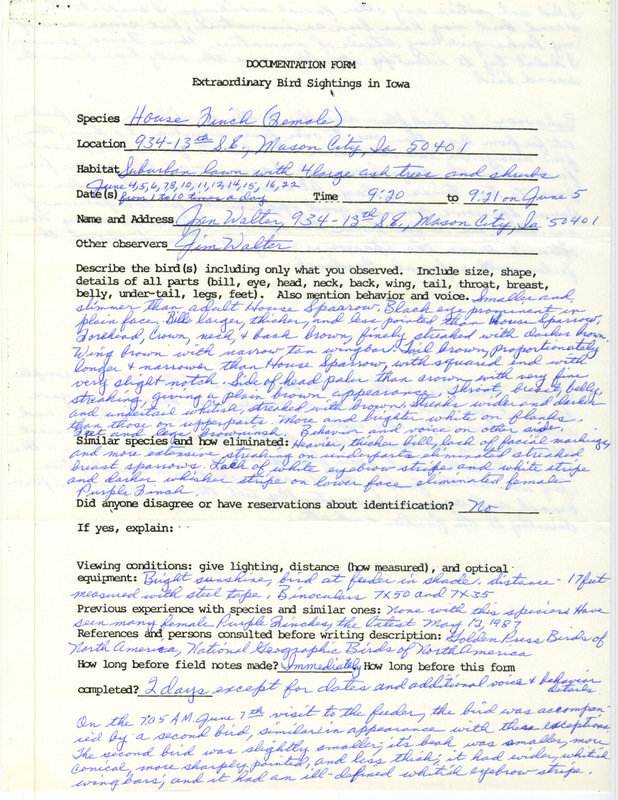 DOCUMENTATION FORM
Extraordinary Bird Sightings in Iowa
Species House Finch (Female)
Location 934-13th S.E., Mason City, Ia 50401
Habitat Suburban lawn with 4 large ash trees and shrubs
June 4,5,6, 7,8,10,11,12,14,15, 16,22
Date(s) from 1 to 10 times a day Time 9:20 to 9:21 on June 5
Name and Address Jan Walter, 934-13th S.E., Mason City, Ia 50401
Other observers Jim Walter
Describe the bird(s) including only what you observed. Include size, shape,
details of all parts (bill, eye, head, neck, back, wing, tail, throat, breast,
belly, under-tail, legs, feet). Also mention behavior and voice. Smaller and
slimmer than adult House Sparrow. Black eye prominent in
plain face. Bill larger, thicker, and less pointed than House Sparrow,
Forehead, crown, neck, & back brown, finely streaked with darker brown.
Wing brown with narrow tan wingbar. Tail brown, proportionately
longer & narrower than House Sparrow, with squared end with
very slight notch. Side of head paler than crown with very fine
streaking, giving a plain brown appearance. Throat, breast, belly,
and undertail whitish, streaked with brown. Streaks wider and darker
than those on upperparts. More and brighter white on flanks.
Feet and legs brownish. Behavior and voice on other side.
Similar species and how eliminated: Heavier, thicker bill, lack of facial markings,
and more extensive streaking on underparts eliminated streaked
breast sparrows. Lack of white eyebrow stripe and white stripe
and darker whisker stripe on lower face eliminated female
Purple Finch.
Did anyone disagree or have reservations about identification? No
If yes, explain:
Viewing conditions: give lighting, distance (how measured), and optical
equipment: Bright sunshine, bird at feeder in shade. distance - 17 feet
measured with steel tape. Binoculars 7X50 and 7X35
Previous experience with species and similar ones: None with this species. Have
seen many female Purple Finches, the latest May 13, 1987
References and persons consulted before writing description: Golden Press Birds of
North America, National Geographic Birds of North America
How long before field notes made? Immediately How long before this form
completed? 2 days except for dates and additional voice & behavior
details.
On the 7:05 A.M. June 7th visit to the feeder, the bird was accompan-
ied by a second bird, similar in appearance with these exceptions.
The second bird was slightly smaller; its beak was smaller, more
conical, more sharply pointed, and less thick; it had wider, whitish
wingbars; and it had an ill-defined whitish eyebrow stripe.